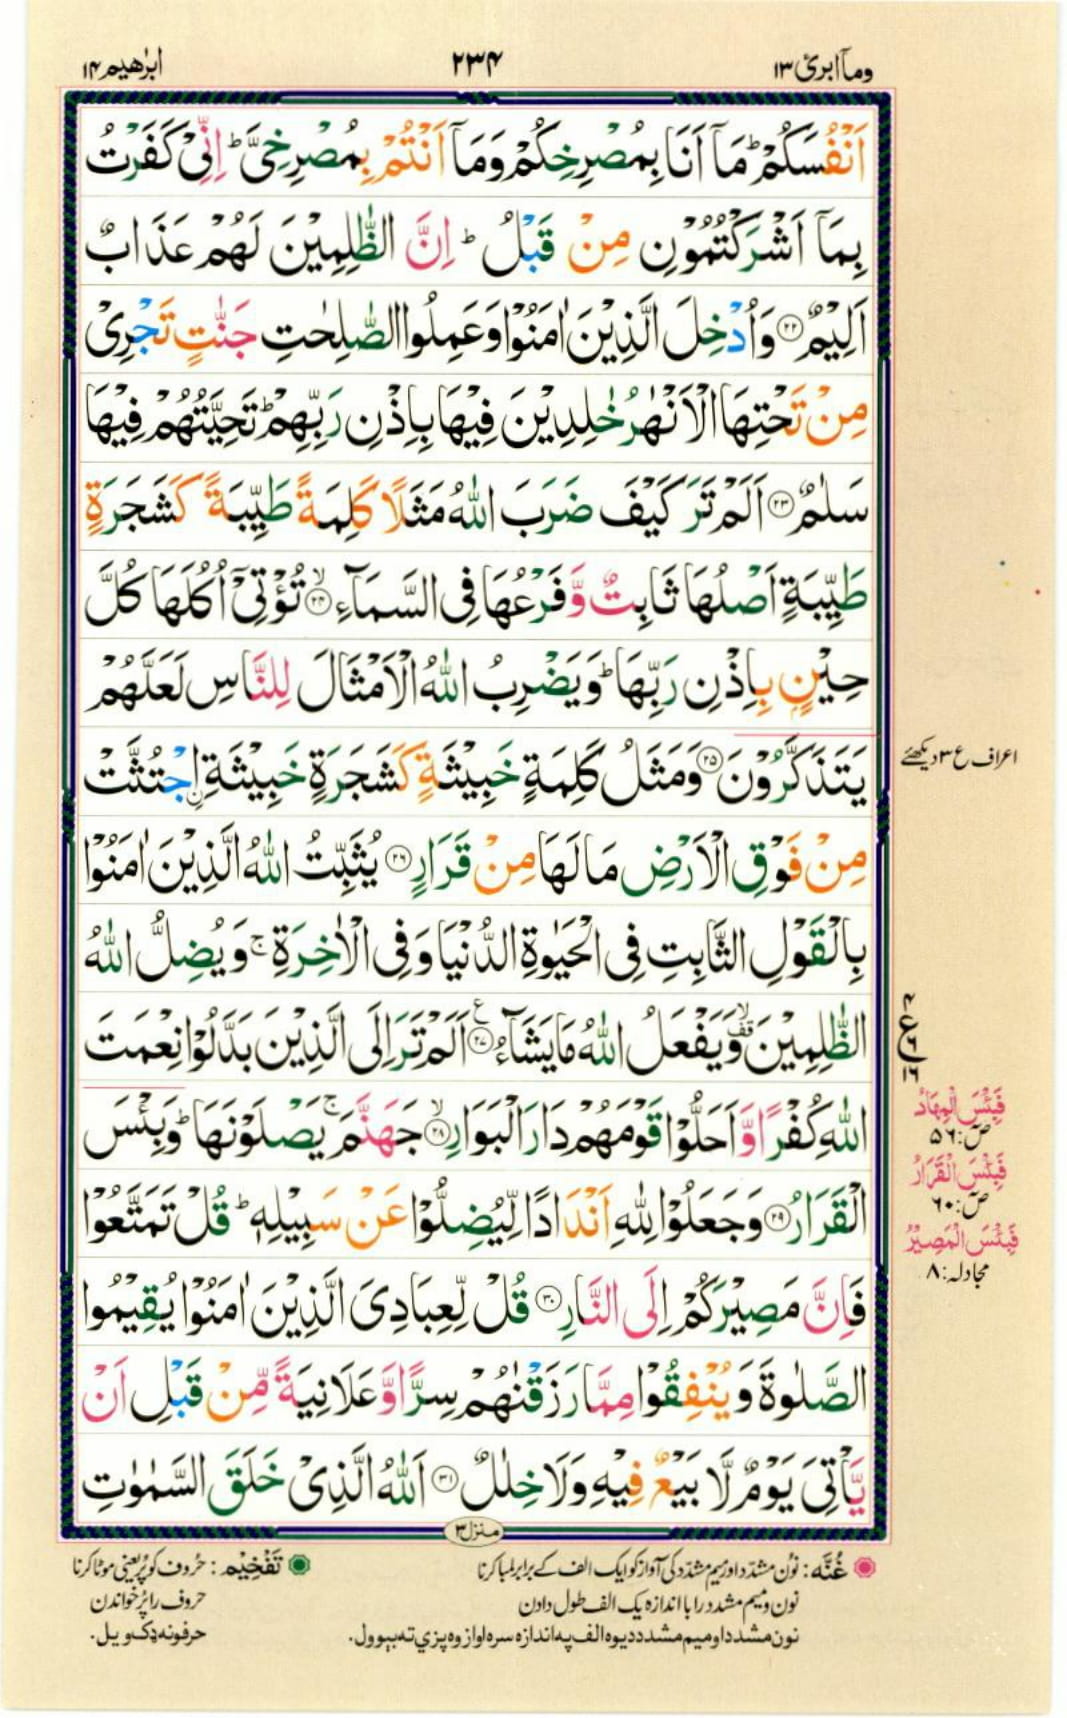 وماۤابرئ ١٣
٢٣۴
ابرٰهیم ١۴
اَنْفُسَكُمْ ؕ مَاۤ اَنَا بِمُصْرِخِكُمْ وَمَاۤ اَنْتُمْ بِمُصْرِخِیَّ ؕ اِنِّیْ كَفَرْتُ
بِمَاۤ اَشْرَكْتُمُوْنِ مِنْ قَبْلُ ؕ اِنَّ الظّٰلِمِیْنَ لَهُمْ عَذَابٌ
اَلِیْمٌ ﴿۲۲﴾ وَاُدْخِلَ الَّذِیْنَ اٰمَنُوْا وَعَمِلُوا الصّٰلِحٰتِ جَنّٰتٍ تَجْرِیْ
مِنْ تَحْتِهَا الْاَنْهٰرُ خٰلِدِیْنَ فِیْهَا بِاِذْنِ رَبِّهِمْ ؕ تَحِیَّتُهُمْ فِیْهَا
سَلٰمٌ ﴿۲۳﴾ اَلَمْ تَرَ كَیْفَ ضَرَبَ اللّٰهُ مَثَلًا كَلِمَةً طَیِّبَةً كَشَجَرَةٍ
طَیِّبَةٍ اَصْلُهَا ثَابِتٌ وَّفَرْعُهَا فِی السَّمَآءِ ۙ﴿۲۴﴾ تُؤْتِیْۤ اُكُلَهَا كُلَّ
حِیْنٍۭ بِاِذْنِ رَبِّهَا ؕ وَیَضْرِبُ اللّٰهُ الْاَمْثَالَ لِلنَّاسِ لَعَلَّهُمْ
یَتَذَكَّرُوْنَ ﴿۲۵﴾ وَمَثَلُ كَلِمَةٍ خَبِیْثَةٍ كَشَجَرَةٍ خَبِیْثَةِ ِ۟اجْتُثَّتْ
اعراف ع ٣ دیکھئے
مِنْ فَوْقِ الْاَرْضِ مَا لَهَا مِنْ قَرَارٍ ﴿۲۶﴾ یُثَبِّتُ اللّٰهُ الَّذِیْنَ اٰمَنُوْا
بِالْقَوْلِ الثَّابِتِ فِی الْحَیٰوةِ الدُّنْیَا وَفِی الْاٰخِرَةِ ۚ وَیُضِلُّ اللّٰهُ
الظّٰلِمِیْنَ ۙ۫ وَیَفْعَلُ اللّٰهُ مَا یَشَآءُ ﴿۲۷﴾ع اَلَمْ تَرَ اِلَی الَّذِیْنَ بَدَّلُوْا نِعْمَتَ
اللّٰهِ كُفْرًا وَّاَحَلُّوْا قَوْمَهُمْ دَارَ الْبَوَارِ ۙ﴿۲۸﴾ جَهَنَّمَ ۚ یَصْلَوْنَهَا ؕ وَبِئْسَ
الْقَرَارُ ﴿۲۹﴾ وَجَعَلُوْا لِلّٰهِ اَنْدَادًا لِّیُضِلُّوْا عَنْ سَبِیْلِهٖ ؕ قُلْ تَمَتَّعُوْا
فَاِنَّ مَصِیْرَكُمْ اِلَی النَّارِ ﴿۳۰﴾ قُلْ لِّعِبَادِیَ الَّذِیْنَ اٰمَنُوْا یُقِیْمُوا
الصَّلٰوةَ وَیُنْفِقُوْا مِمَّا رَزَقْنٰهُمْ سِرًّا وَّعَلَانِیَةً مِّنْ قَبْلِ اَنْ
یَّاْتِیَ یَوْمٌ لَّا بَیْعٌ فِیْهِ وَلَا خِلٰلٌ ﴿۳۱﴾ اَللّٰهُ الَّذِیْ خَلَقَ السَّمٰوٰتِ
۴
ع
٦
١٦
فَبِئْسَ الْمِهَادُ
صٓ:٥٦
فَبِئْسَ الْقَرَارُ
صٓ:٦٠
فَبِئْسَ الْمَصِیْرُ
مجادلہ:٨
منزل٣
غُنَّه: نُون مشدّد اور میم مشدّد کی آواز کو ایک الف کے برابر لمبا کرنا
نون ومیم مشدد را با اندازه یک الف طول دادن
نون مشدد او میم مشدد د یوه الف په اندازه سره اواز وه پزي ته بېوول.
تَفْخِیْم: حُروف کو پُر یعنی موٹا کرنا
حروف را پُر خواندن
حرفونه ډک ویل.